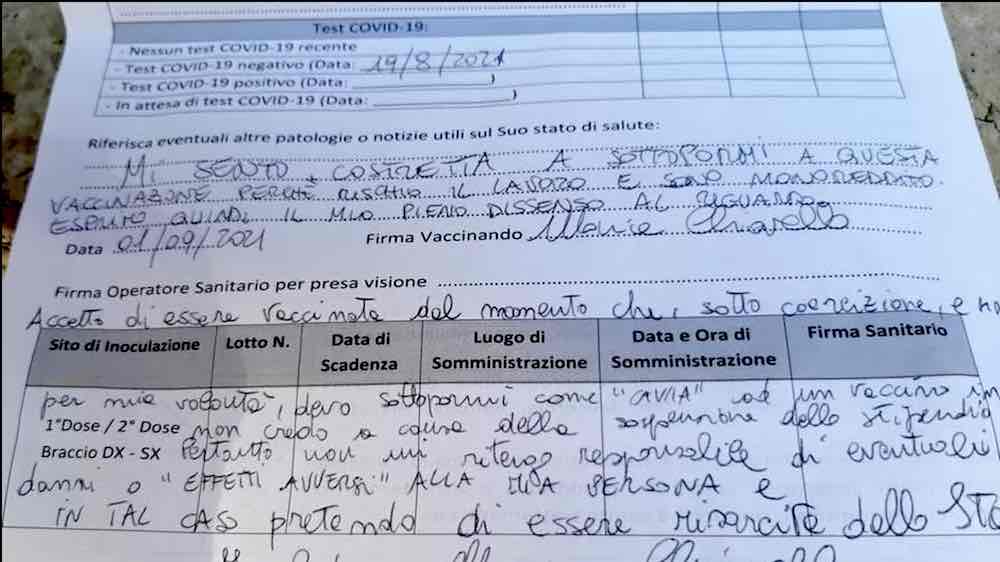 Test COVID-19:
- Nessun test COVID-19 recente
- Test COVID-19 negativo (Data: 19/8/2021
- Test COVID-19 positivo (Data: ____________)
- In attesa di test COVID-19 (Data: ____________)
Riferisca eventuali altre patologie o notizie utili sul Suo stato di salute:
MI SENTO COSTRETTA A SOTTOPORMI A QUESTA
VACCINAZIONE PERCHÉ RISCHIO IL LAVORO E SONO MONOREDDITO.
ESPRIMO QUINDI IL MIO PIENO DISSENSO AL RIGUARDO
Data 01/09/2021 Firma Vaccinando Maria Chiarello
Firma Operatore Sanitario per presa visione
Accetto di essere vaccinata dal momento che, sotto coercizione, e
Sito di Inoculazione Lotto N. Data di Scadenza Luogo di Somministrazione Data e Ora di Somministrazione Firma Sanitario
per mia volontà, devo sottopormi come "CAVIA" ad un vaccino in
1°Dose / 2° Dose non credo a causa della sospensione dello stipendio
Braccio DX - SX Pertanto non mi ritengo responsabile di eventuali
danni o "EFFETTI AVVERSI" ALLA MIA PERSONA e
IN TAL CASO pretendo di essere risarcita dallo